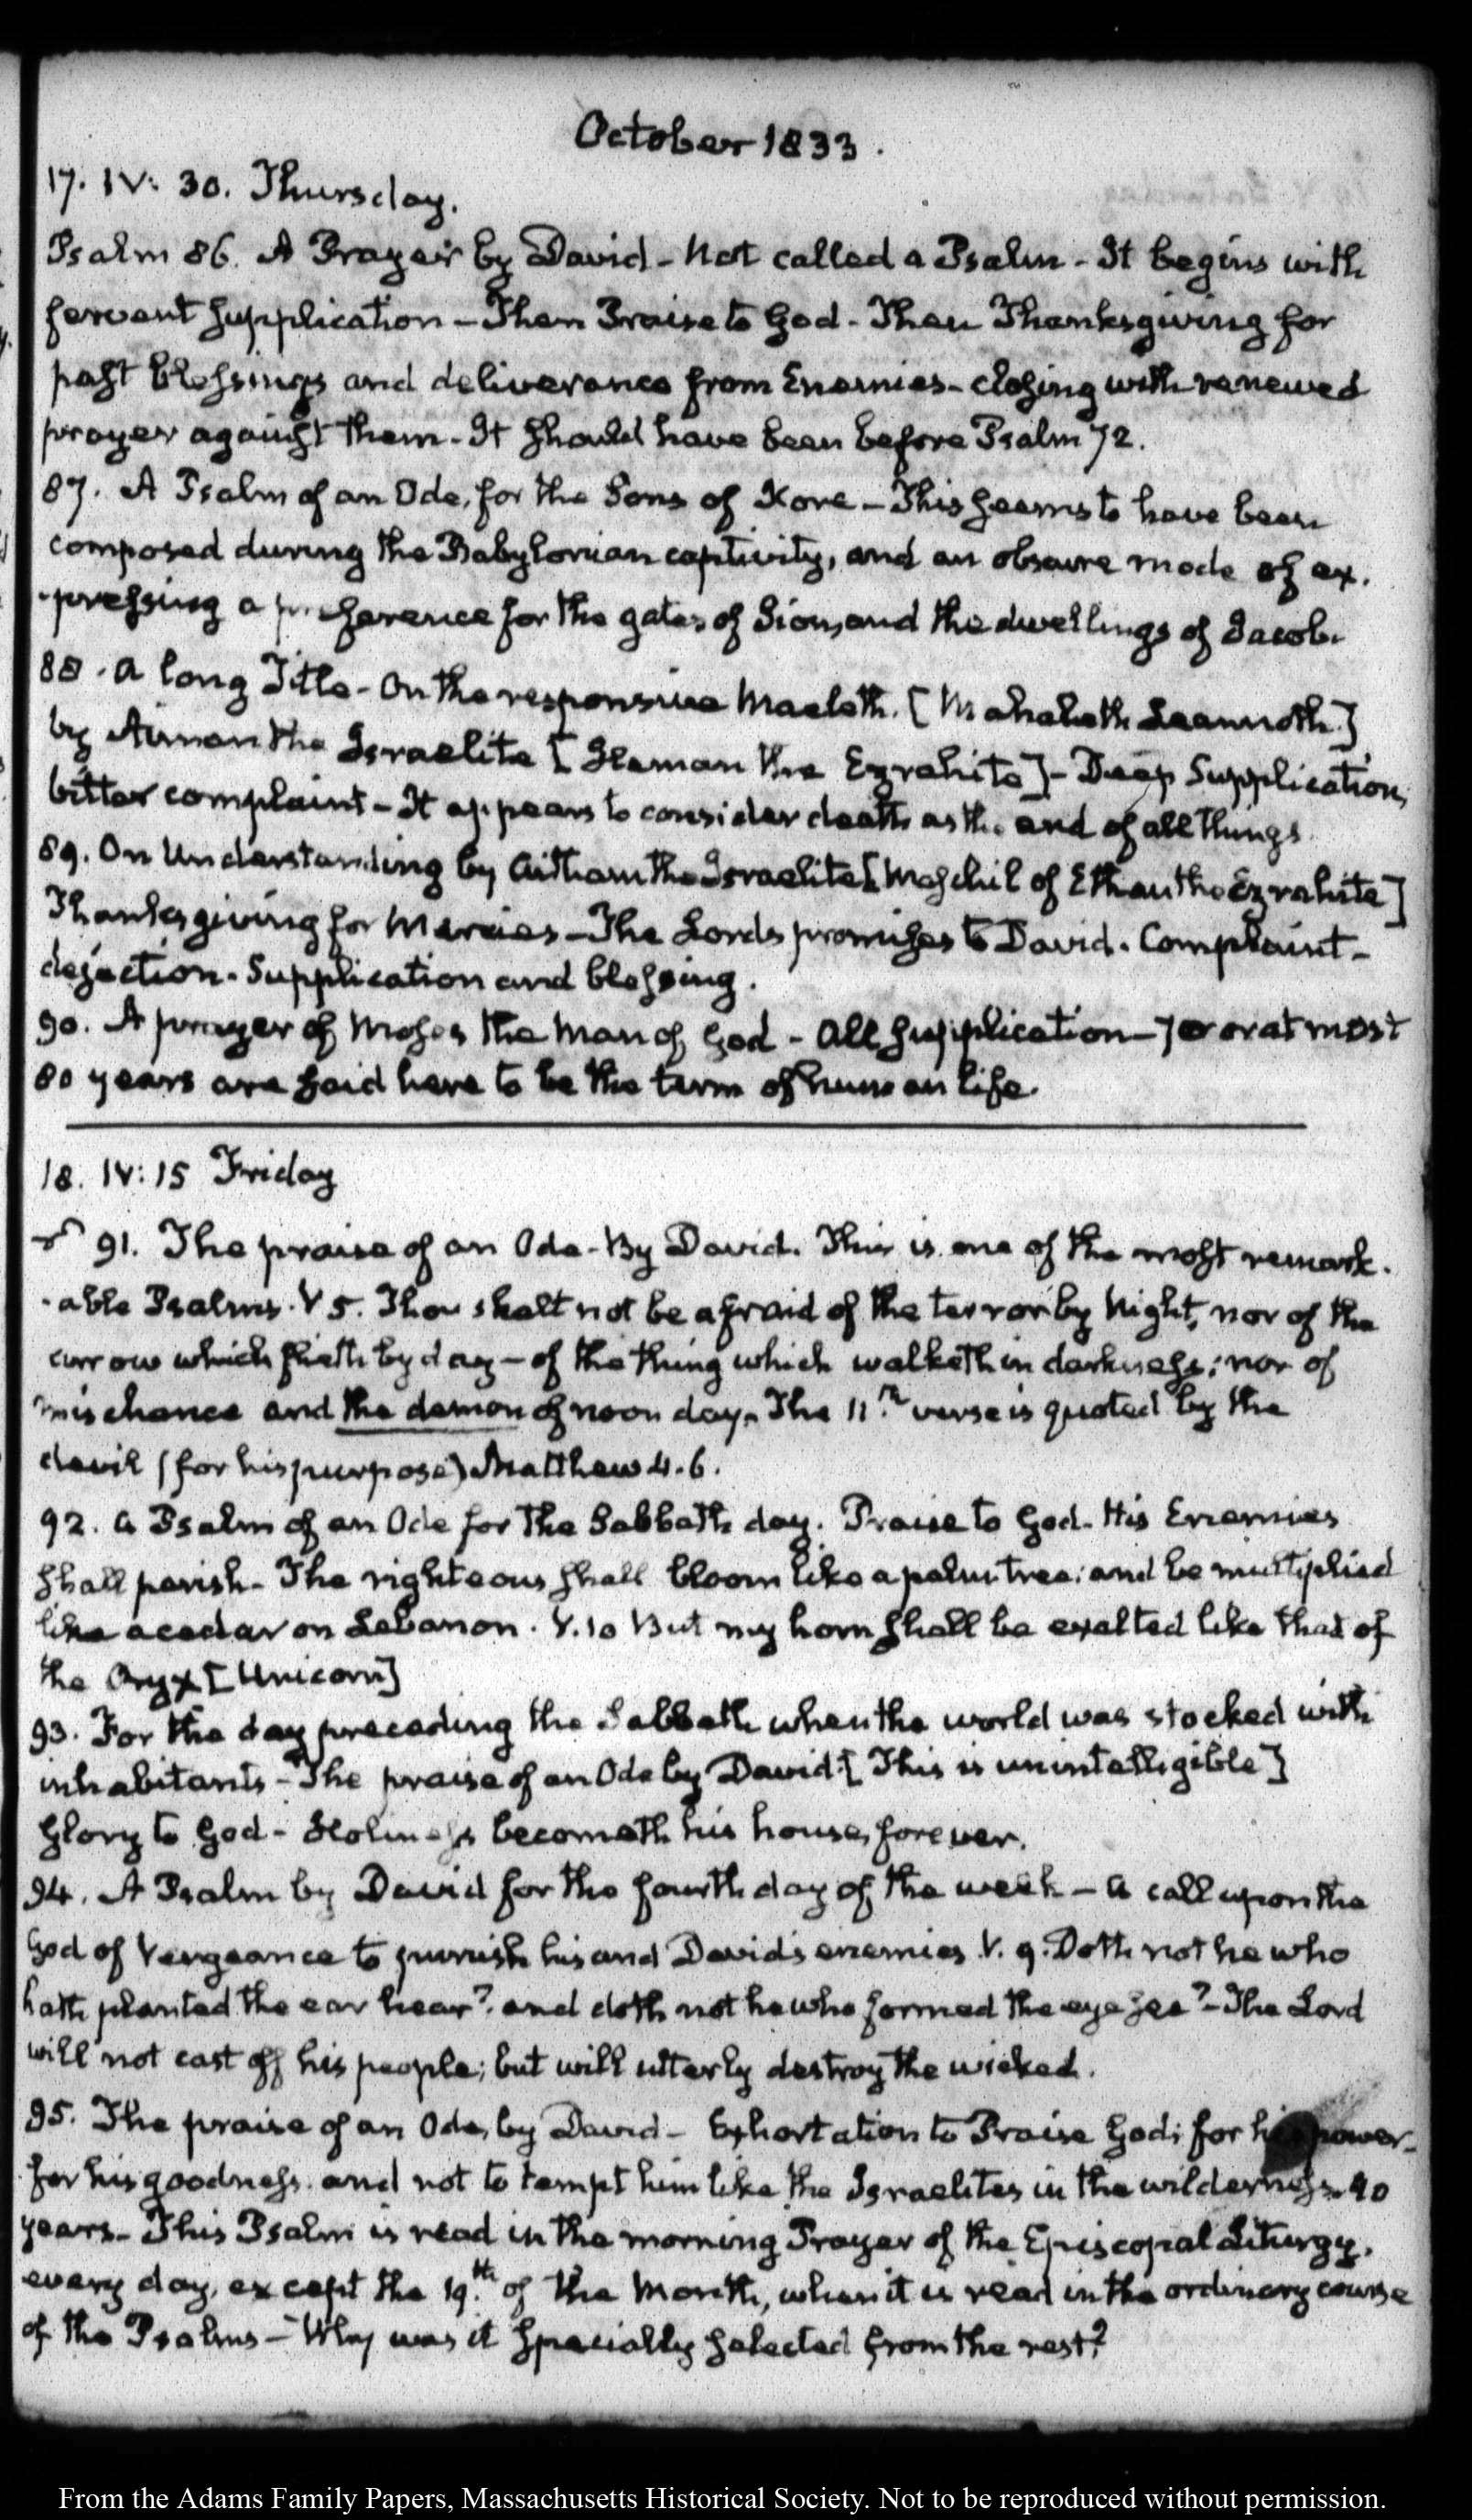 October 1833.
17. IV: 30. Thursday.
Psalm 86. A Prayer by David - Not called a Psalm - It begins with
fervent supplication - Then Praise to God - Then Thanksgiving for
past blessings and deliverance from Enemies - closing with renewed
prayer against them - It should have been before Psalm 72.
87. A Psalm of an Ode, for the Sons of Kore - This seems to have been
composed during the Babylonian captivity, and an obscure mode of ex-
-pressing a preference for the gates of Sion, and the dwellings of Jacob.
88. A long Title - On the responsive Maeleth. [Mahalath Leannoth]
by Aiman the Israelite [Heman the Ezrahite] - Deep Supplication,
bitter complaint - It appears to consider death as the end of all things.
89. On Understanding by Aitham the Israelite [Maschil of Ethan the Ezrahite]
Thanksgiving for Mercies - The Lords promises to David. Complaint -
dejection - Supplication and blessing.
90. A prayer of Moses the Man of God - All supplication - 70 or at most
80 years are said here to be the term of human life.
18. IV: 15 Friday
91. The praise of an Ode - By David. This is one of the most remark-
-able Psalms. V 5. Thou shalt not be afraid of the terror by Night, nor of the
arrow which flieth by day - of the thing which walketh in darkness; nor of
mischance and the demon of noon day. The 11th verse is quoted by the
devil (for his purpose) Matthew 4. 6.
92. A Psalm of an Ode for the Sabbath day. Praise to God. His Enemies
shall perish - The righteous shall bloom like a palm tree; and be multiplied
like a cedar on Lebanon. V. 10 But my horn shall be exalted like that of
the Oryx [Unicorn]
93. For the day preceding the Sabbath when the world was stocked with
inhabitants - The praise of an Ode by David. [This is unintelligible]
Glory to God - Holiness becometh his house, forever.
94. A Psalm by David for the fourth day of the week - A call upon the
God of Vengeance to punish his and David's enemies. V. 9. Doth not he who
hath planted the ear hear? and doth not he who formed the eye see? - The Lord
will not cast off his people; but will utterly destroy the wicked.
95. The praise of an Ode, by David - Exhortation to Praise God; for his power -
for his goodness. and not to tempt him like the Israelites in the wilderness. 40
years - This Psalm is read in the morning Prayer of the Episcopal Liturgy,
every day, except the 19th of the Month, when it is read in the ordinary course
of the Psalms - Why was it specially selected from the rest?
From the Adams Family Papers, Massachusetts Historical Society. Not to be reproduced without permission.